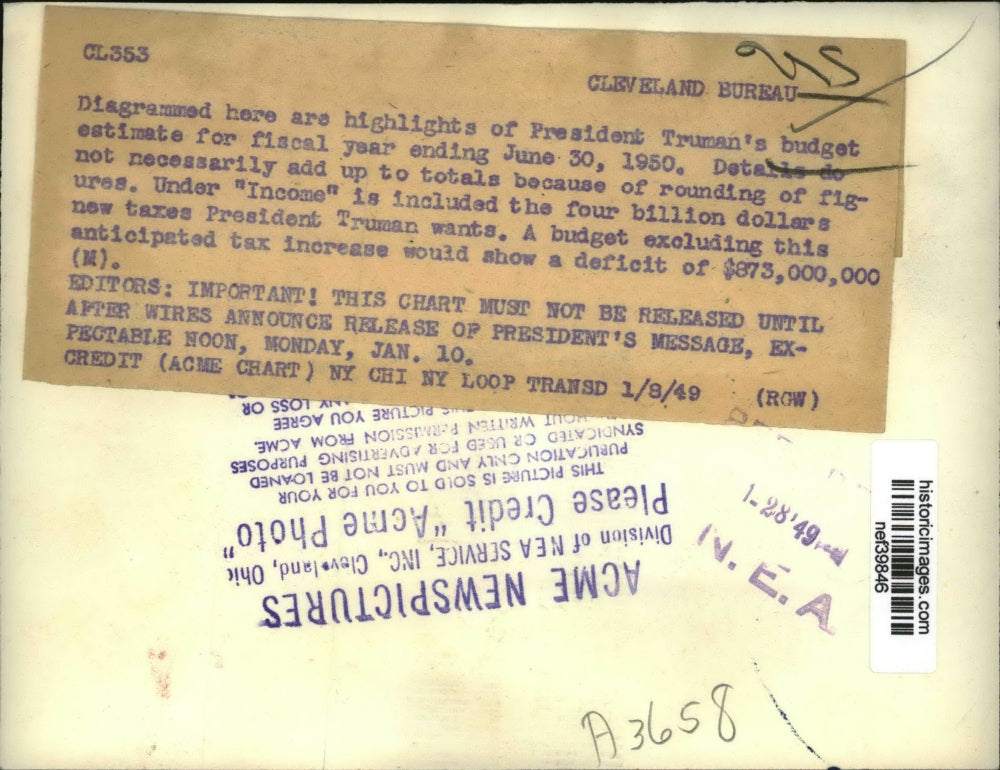 CL353
CLEVELAND BUREAU
Diagrammed here are highlights of President Truman's budget
estimate for fiscal year ending June 30, 1950. Details do
not necessarily add up to totals because of rounding of fig-
ures. Under "Income" is included the four billion dollars
new taxes President Truman wants. A budget excluding this
anticipated tax increase would show a deficit of $873,000,000
(M).
EDITORS: IMPORTANT! THIS CHART MUST NOT BE RELEASED UNTIL
AFTER WIRES ANNOUNCE RELEASE OF PRESIDENT'S MESSAGE, EX-
PECTABLE NOON, MONDAY, JAN. 10.
CREDIT (ACME CHART) NY CHI NY LOOP TRANSD 1/8/49 (RGW)
ACME NEWSPICTURES
Division of NEA SERVICE, INC., Cleveland, Ohio
Please Credit "Acme Photo"
THIS PICTURE IS SOLD TO YOU FOR YOUR
PUBLICATION ONLY AND MUST NOT BE LOANED
SYNDICATED OR USED FOR ADVERTISING PURPOSES
WRITTEN PERMISSION FROM ACME.
PICTURE YOU AGREE
LOSS OR
1-28'49
N. E. A
historicimages.com
nef39846
A3658